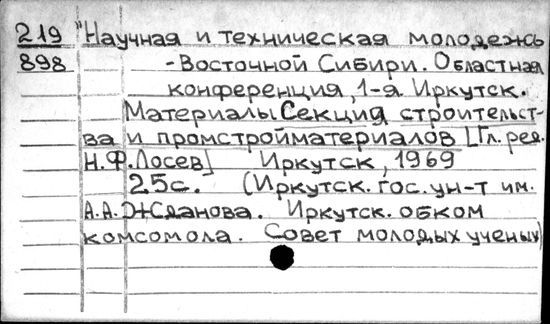 219 "Научная и техническая молодежь
898 - Восточной Сибири. Областная
конференция, 1-я. Иркутск.
Материалы Секция строительст-
ва и промстройматериалов [Гл. ред.
Н.Ф. Лосев] Иркутск, 1969
25с. (Иркутск. гос. ун-т им.
А.А. Жданова. Иркутск. обком
комсомола. Совет молодых ученых)